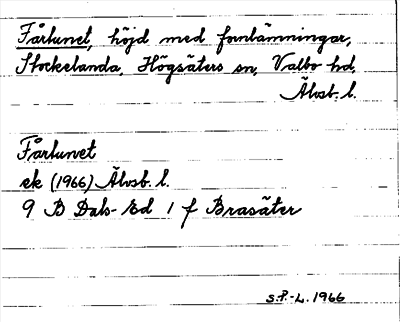 Fårtunet, höjd med fornlämningar,
Stockelanda, Högsäters sn, Valbo hd,
Älvsb. l.
Fårtunet
ek (1966) Älvsb. l.
9 B Dals-Ed 1 f Brasäter
S.P.-L. 1966